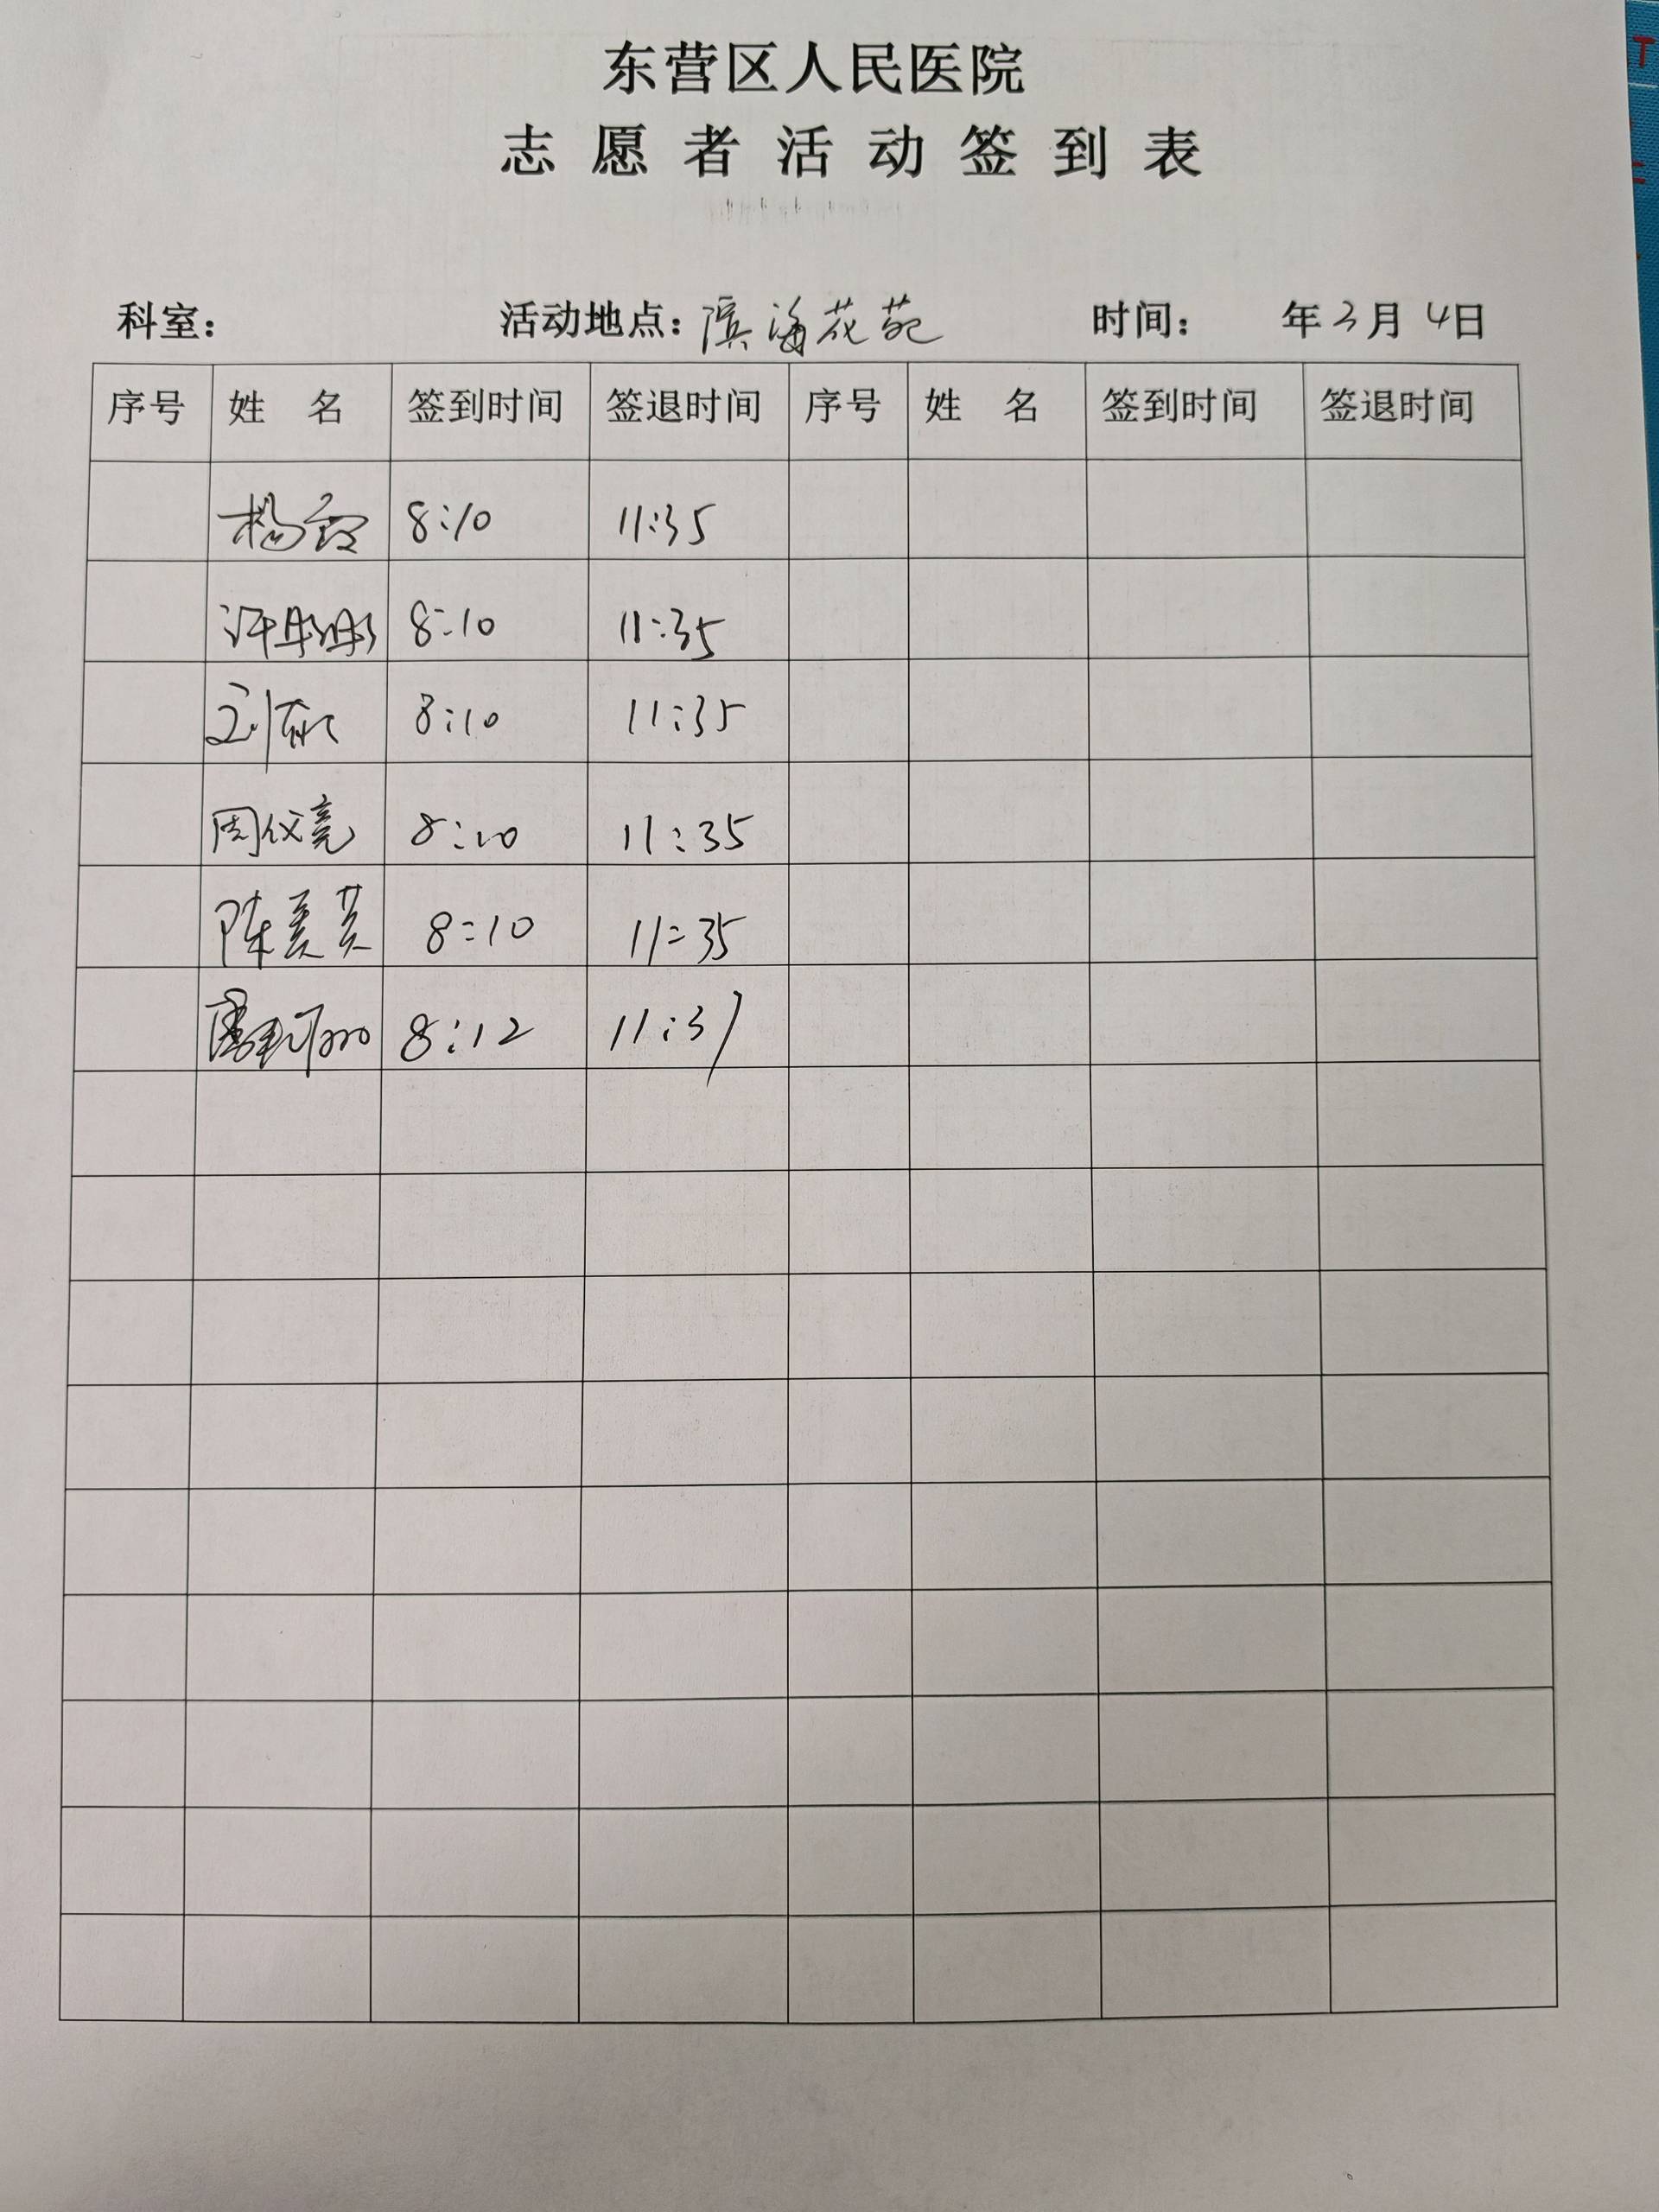 东营区人民医院
志愿者活动签到表
科室： 活动地点：滨海花苑 时间： 年3月4日
序号 姓 名 签到时间 签退时间 序号 姓 名 签到时间 签退时间
杨 8:10 11:35
许彤彤 8:10 11:35
刘 8:10 11:35
周仪亮 8:10 11:35
陈美英 8:10 11:35
8:12 11:37